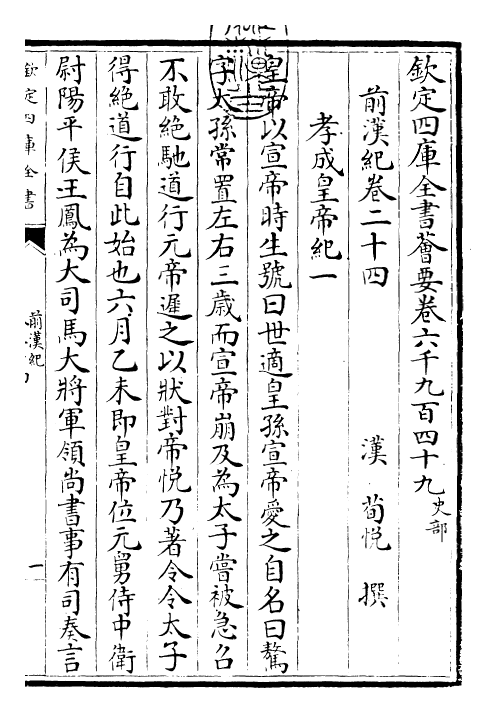 欽定四庫全書薈要卷六千九百四十九史部
前漢紀卷二十四　漢　荀悅　撰
孝成皇帝紀一
皇帝以宣帝時生號曰世適皇孫宣帝愛之自名曰驁
字太孫常置左右三歲而宣帝崩及為太子嘗被急召
不敢絕馳道行元帝遲之以狀對帝悅乃著令令太子
得絕道行自此始也六月乙未即皇帝位元舅侍中衛
尉陽平侯王鳳為大司馬大將軍領尚書事有司奏言
欽定四庫全書
前漢紀
一